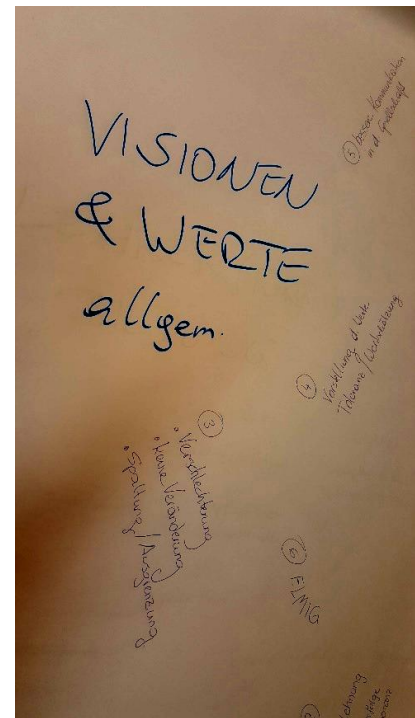 VISIONEN
& WERTE
allgem.
⑤ bessere Kommunikation
in d. Gesellschaft
④
Vermittlung d. Werte
Toleranz / Wertschätzung
③
• Verschlechterung
• keine Veränderung
• Spaltung / Ausgrenzung
⑤ FLMIG